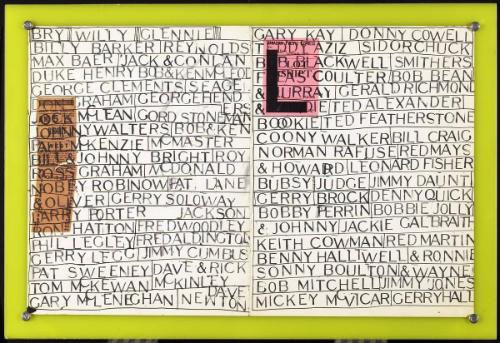 BRY WILLY GLENNIE
BILLY BARKER REYNOLDS
MAX BAER JACK & CONLAN
DUKE HENRY BOB & KEN MCFEE
GEORGE CLEMENTS SEAGE
GRAHAM GEORGE HENDERS
MCLEAN GORD STONEMAN
JOHNNY WALTERS BOB & KEN
MCKENZIE MCMASTER
BILL & JOHNNY BRIGHT ROY
ROSS GRAHAM MCDONALD
NOBBY ROBINOW PAT. LANE
& OLIVER GERRY SOLOWAY
LARRY PORTER JACKSON
RON HATTON FRED WOODLEY
PHIL LEGLEY FRED ALDINGTOS
GERRY LEGG JIMMY CUMBUS
PAT SWEENEY DAVE & RICK
TOM MCKEWAN MCKINLEY DAVY
GARY MCLENEGHAN NEWTON
GARY KAY DONNY COWELL
EDDY AZIZ SIDORCHUCK
BLACKWELL SMITHERS
COULTER BOB BEAN
& MURRAY GERALD RICHMOND
L
TED ALEXANDER
BOOK TED FEATHERSTONE
COONY WALKER BILL CRAIG
NORMAN RAFUSE RED MAYS
& HOWARD LEONARD FISHER
BUBSY JUDGE JIMMY DAUNT
GERRY BROCK DENNY QUICK
BOBBY PERRIN BOBBIE JOLLY
& JOHNNY JACKIE GALBRAIT
KEITH COWMAN RED MARTIN
BENNY HALLWELL & RONNIE
SONNY BOULTON & WAYNE
BOB MITCHELL JIMMY JONES
MICKEY MCVICAR GERRY HALL